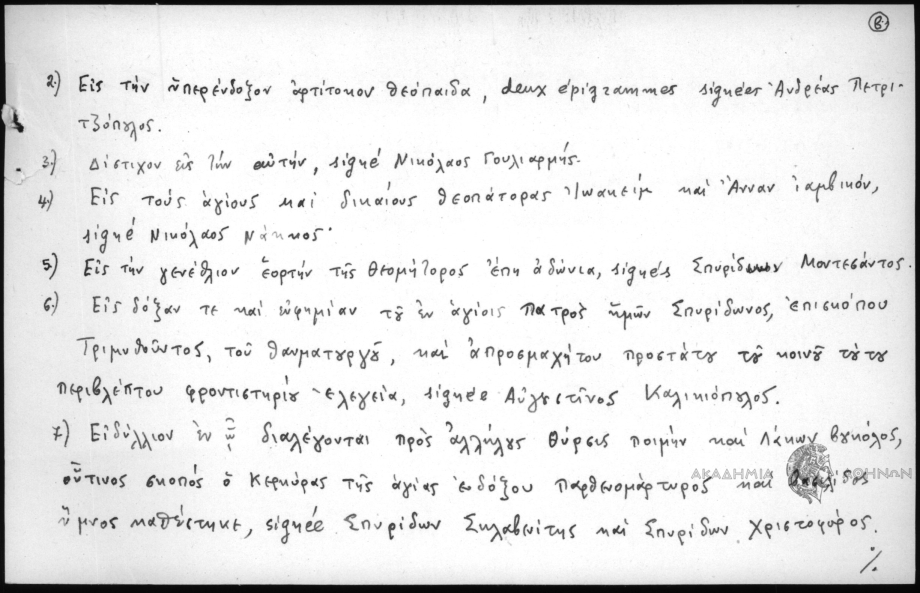 β.)
2.) Εἰς τὴν ὑπερένδοξον ἀρτίτοκον θεόπαιδα, deux épigrammes signées Ἀνδρέας Πετρι-
τζόπυλος.
3.) Δίστιχον εἰς τὴν αὐτήν, signé Νικόλαος Γουλιαρμής.
4.) Εἰς τοὺς ἁγίους καὶ δικαίους θεοπάτορας Ἰωακεὶμ καὶ Ἄνναν ἰαμβικόν,
signé Νικόλαος Νάκκος.
5.) Εἰς τὴν γενέθλιον ἑορτὴν τῆς Θεομήτορος ἔπη ἀδώνια, signés Σπυρίδων Μοντεσάντος.
6.) Εἰς δόξαν τε καὶ εὐφημίαν τȣ͂ ἐν ἁγίοις Πατρὸς ἡμῶν Σπυρίδωνος, ἐπισκόπου
Τριμυθοῦντος, τοῦ θαυματȣργȣ͂, καὶ ἀπροσμαχήτου προστάτȣ τȣ͂ κοινȣ͂ τȣ́τȣ
περιβλέπτου φροντιστηρίȣ ἐλεγεία, signée Αὐγυστῖνος Καλικιόπυλος.
7.) Εἰδύλλιον ἐν ᾧ διαλέγονται πρὸς ἀλλήλȣς Θύρσις ποιμὴν καὶ Λάκων βȣκόλος,
οὗτινος σκοπός ὁ Κερκύρας τῆς ἁγίας ἐνδόξου Παρθενομάρτυρος καὶ βασιλίδος
ὕμνος καθέστηκε, signée Σπυρίδων Σκλαβενίτης καὶ Σπυρίδων Χριστοφόρος.
./.
ΑΚΑΔΗΜΙΑ ΑΘΗΝΩΝ